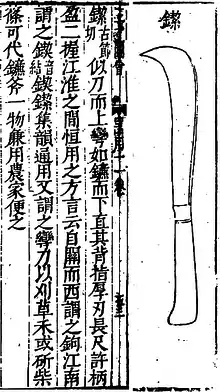 鍥
鍥古節切似刀而上彎如鐮而下直其背指厚刃長尺許柄
盈二握江淮之間恒用之方言云自關而西謂之鉤江南
謂之鍥音結鍥集韻通用又謂之彎刀以刈草禾或斫柴
篠可代鐮斧一物兼用農家便之